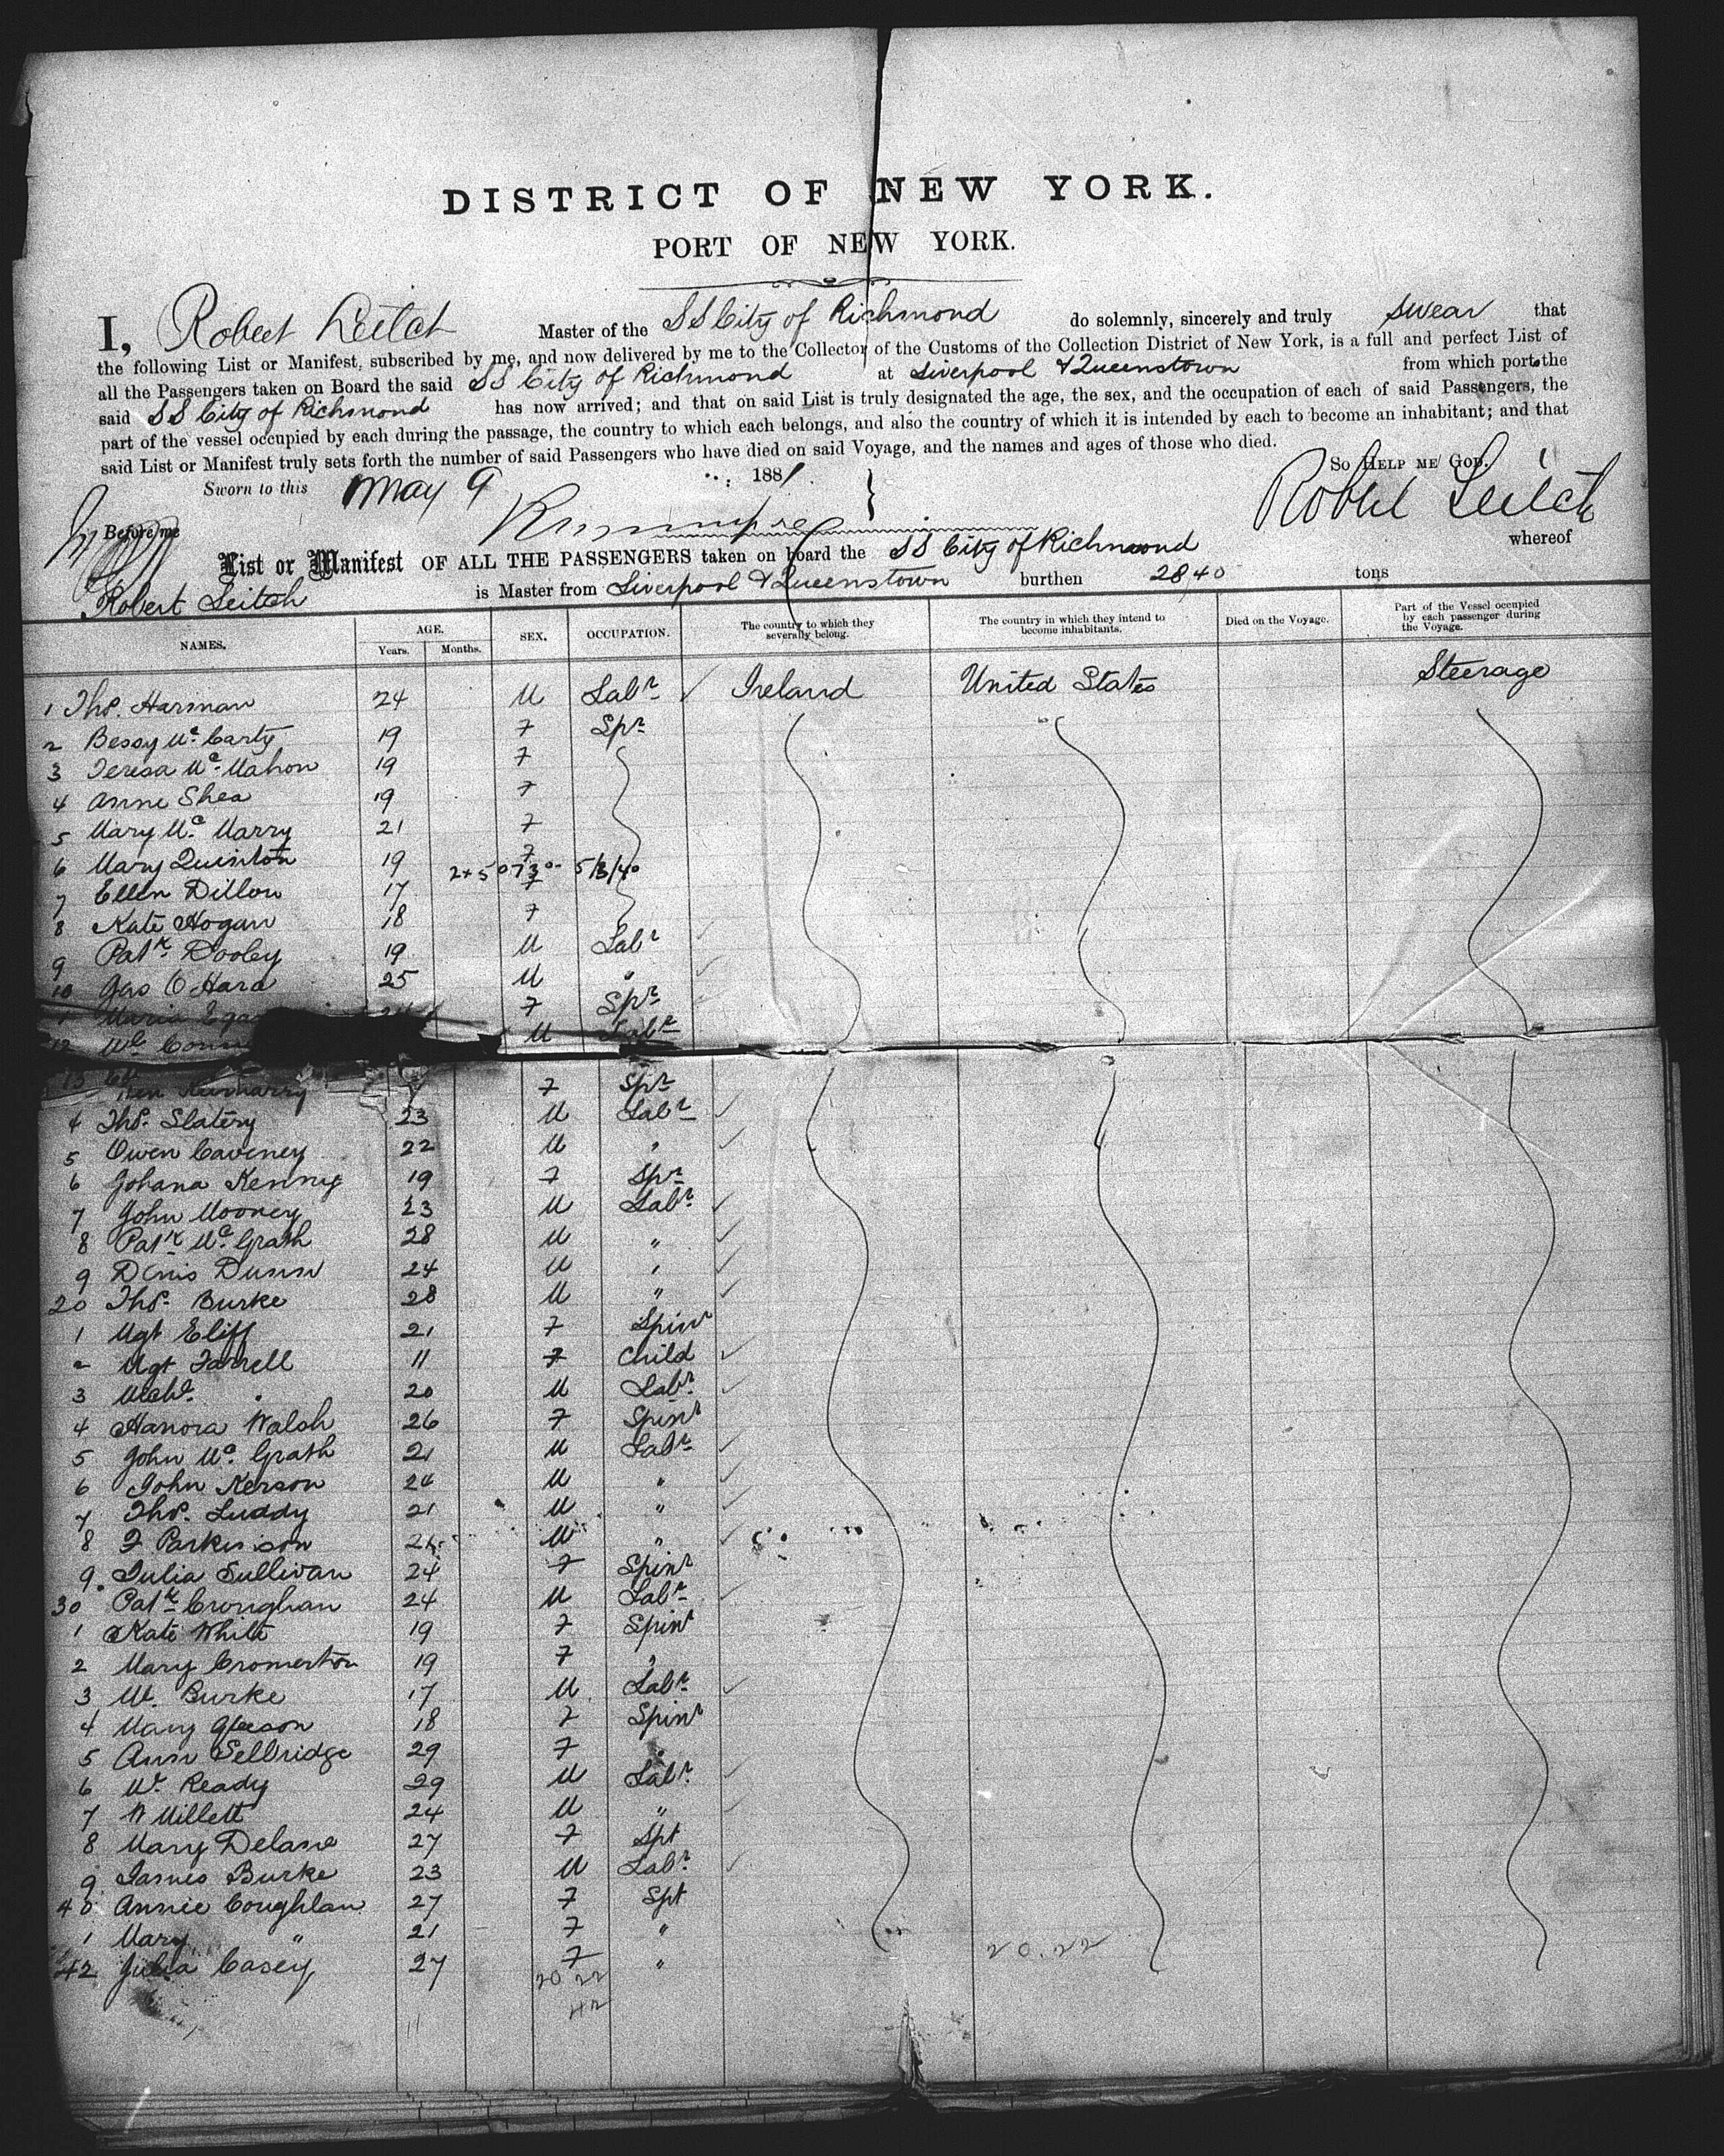 DISTRICT OF NEW YORK.
PORT OF NEW YORK.
I, Robert Leitch Master of the SS City of Richmond do solemnly, sincerely and truly swear that
the following List or Manifest, subscribed by me, and now delivered by me to the Collector of the Customs of the Collection District of New York, is a full and perfect List of
all the Passengers taken on Board the said SS City of Richmond at Liverpool & Queenstown from which port the
said SS City of Richmond has now arrived; and that on said List is truly designated the age, the sex, and the occupation of each of said Passengers, the
part of the vessel occupied by each during the passage, the country to which each belongs, and also the country of which it is intended by each to become an inhabitant; and that
said List or Manifest truly sets forth the number of said Passengers who have died on said Voyage, and the names and ages of those who died.
So HELP ME GOD.
Sworn to this May 9 1881.
Robert Leitch
Before me
List or Manifest OF ALL THE PASSENGERS taken on board the SS City of Richmond whereof
Robert Leitch is Master from Liverpool & Queenstown burthen 2840 tons
NAMES. AGE. Years. Months. SEX. OCCUPATION. The country to which they severally belong. The country in which they intend to become inhabitants. Died on the Voyage. Part of the Vessel occupied by each passenger during the Voyage.
1 Thos. Harman 24 M Labr Ireland United States Steerage
2 Bessy Mc Carty 19 F Spr
3 Teresa Mc Mahon 19 F
4 Anne Shea 19 F
5 Mary Mc Marry 21 F
6 Mary Quinton 19 F
7 Ellen Dillon 17 F
8 Kate Hogan 18 F
9 Patk Dooley 19 M Labr
10 Jas O Hara 25 M "
1 Maria F Spr
12 M Labr
13 F Spr
4 Thos. Slatery 23 M Labr
5 Owen Caveney 22 M "
6 Johana Kenny 19 F Spr
7 John Mooney 23 M Labr
8 Patk Mc Grath 28 M "
9 Denis Dunn 24 M "
20 Thos. Burke 28 M "
1 Mgt Eliff 21 F Spinr
2 Mgt Farrell 11 F Child
3 Michl. " 20 M Labr
4 Hanora Walsh 26 F Spinr
5 John Mc Grath 21 M Labr
6 John Kerson 24 M "
7 Thos. Luddy 21 M "
8 Parkinson M "
9 Julia Sullivan 24 F Spinr
30 Patk Croughan 24 M Labr
1 Kate White 19 F Spinr
2 Mary Cromerton 19 F "
3 M. Burke 17 M Labr
4 Mary Gleeson 18 F Spinr
5 Ann Selbridge 29 F "
6 Ready 29 M Labr
7 W Millett 24 M "
8 Mary Delane 27 F Spt
9 James Burke 23 M Labr
40 Annie Coughlan 27 F Spt
1 Mary " 21 F "
42 Julia Casey 27 F "
20 22 20.22
42